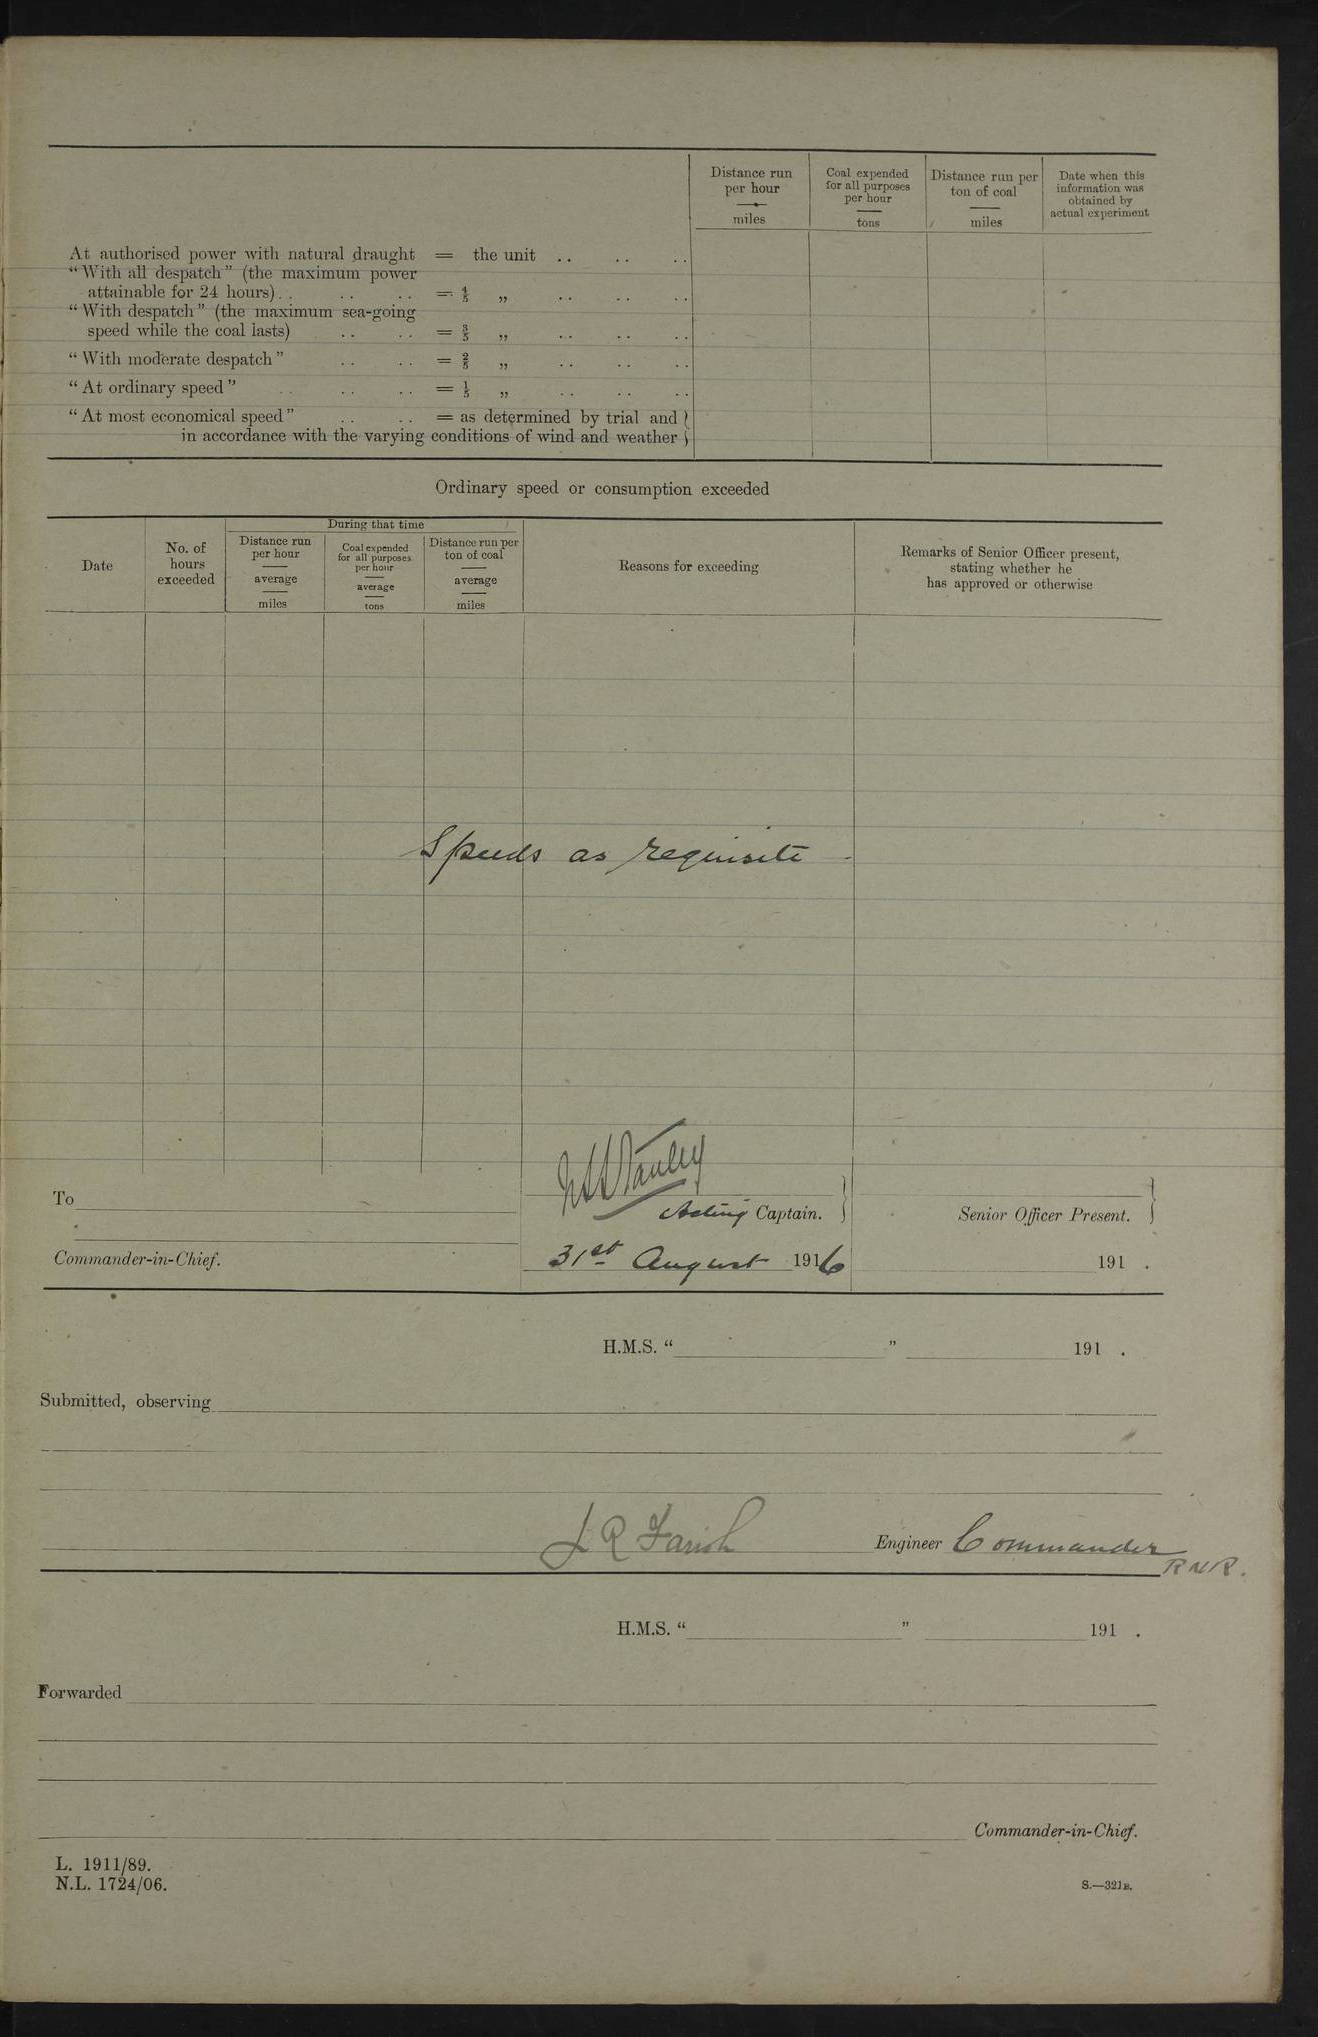 Distance run
per hour
miles
Coal expended
for all purposes
per hour
tons
Distance run per
ton of coal
miles
Date when this
information was
obtained by
actual experiment
At authorised power with natural draught = the unit .. .. ..
“With all despatch” (the maximum power
attainable for 24 hours) .. .. .. = 4/5 „ .. .. ..
“With despatch” (the maximum sea-going
speed while the coal lasts) .. .. = 3/5 „ .. .. ..
“With moderate despatch” .. .. = 2/5 „ .. .. ..
“At ordinary speed” .. .. .. = 1/5 „ .. .. ..
“At most economical speed” .. .. = as determined by trial and }
in accordance with the varying conditions of wind and weather }
Ordinary speed or consumption exceeded
Date
No. of
hours
exceeded
During that time
Distance run
per hour
average
miles
Coal expended
for all purposes
per hour
average
tons
Distance run per
ton of coal
average
miles
Reasons for exceeding
Remarks of Senior Officer present,
stating whether he
has approved or otherwise
Speeds as requisite
Stanley
To
Acting Captain. }
Senior Officer Present. }
Commander-in-Chief.
31st August 1916
191 .
H.M.S. “ ” 191 .
Submitted, observing
J R Farish Engineer Commander
R N R.
H.M.S. “ ” 191 .
Forwarded
Commander-in-Chief.
L. 1911/89.
N.L. 1724/06.
S.—321B.